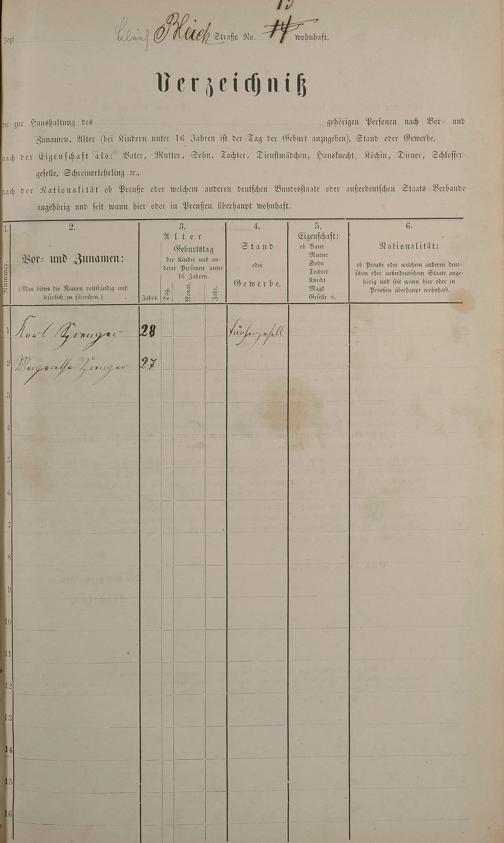 13
Bleich Straße No. 14 wohnhaft.
Verzeichniß
der zur Haushaltung des gehörigen Personen nach Vor- und
Zunamen, Alter (bei Kindern unter 16 Jahren ist der Tag der Geburt anzugeben), Stand oder Gewerbe,
nach der Eigenschaft als: Vater, Mutter, Sohn, Tochter, Dienstmädchen, Hausknecht, Köchin, Diener, Schlosser-
geselle, Schreinerlehrling ꝛc.,
nach der Nationalität ob Preuße oder welchem anderen deutschen Bundesstaate oder außerdeutschen Staats-Verbande
angehörig und seit wann hier oder in Preußen überhaupt wohnhaft.
1.
Nummer.
2.
Vor- und Zunamen:
(Man bittet die Namen vollständig und
leserlich zu schreiben.)
3.
Alter
Geburtstag
der Kinder und an-
derer Personen unter
16 Jahren.
Jahre.
Tag.
Monat.
Jahr.
4.
Stand
oder
Gewerbe.
5.
Eigenschaft:
ob Vater
Mutter
Sohn
Tochter
Knecht
Magd
Geselle ꝛc.
6.
Nationalität:
ob Preuße oder welchem anderen deut-
schen oder außerdeutschen Staate ange-
hörig und seit wann hier oder in
Preußen überhaupt wohnhaft.
1 Karl 28
2 Margaretha 27
3
4
5
6
7
8
9
10
11
12
13
14
15
16